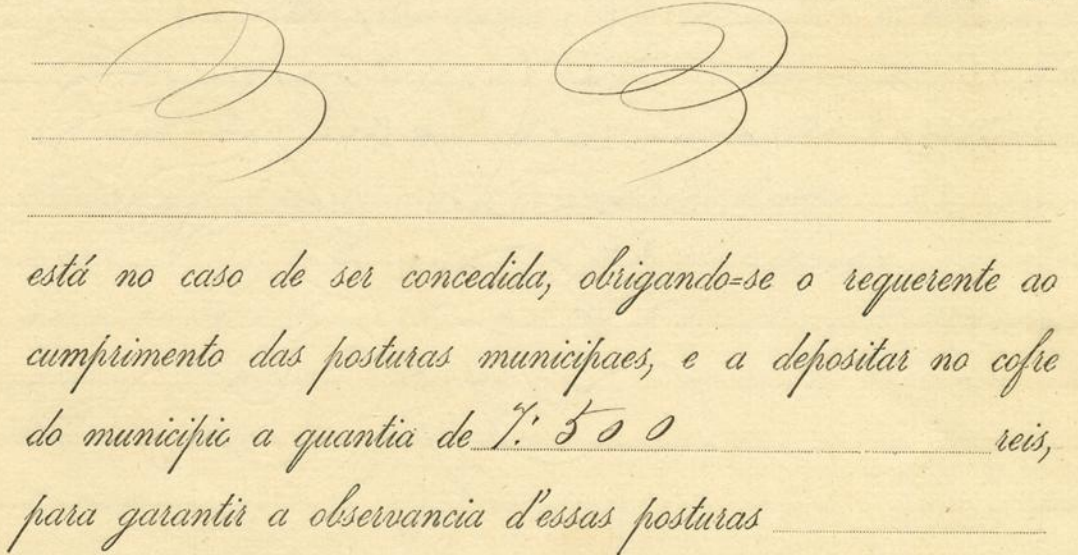 está no caso de ser concedida, obrigando=se o requerente ao
cumprimento das posturas municipaes, e a depositar no cofre
do municipio a quantia de 7:500 reis,
para garantir a observancia d'essas posturas